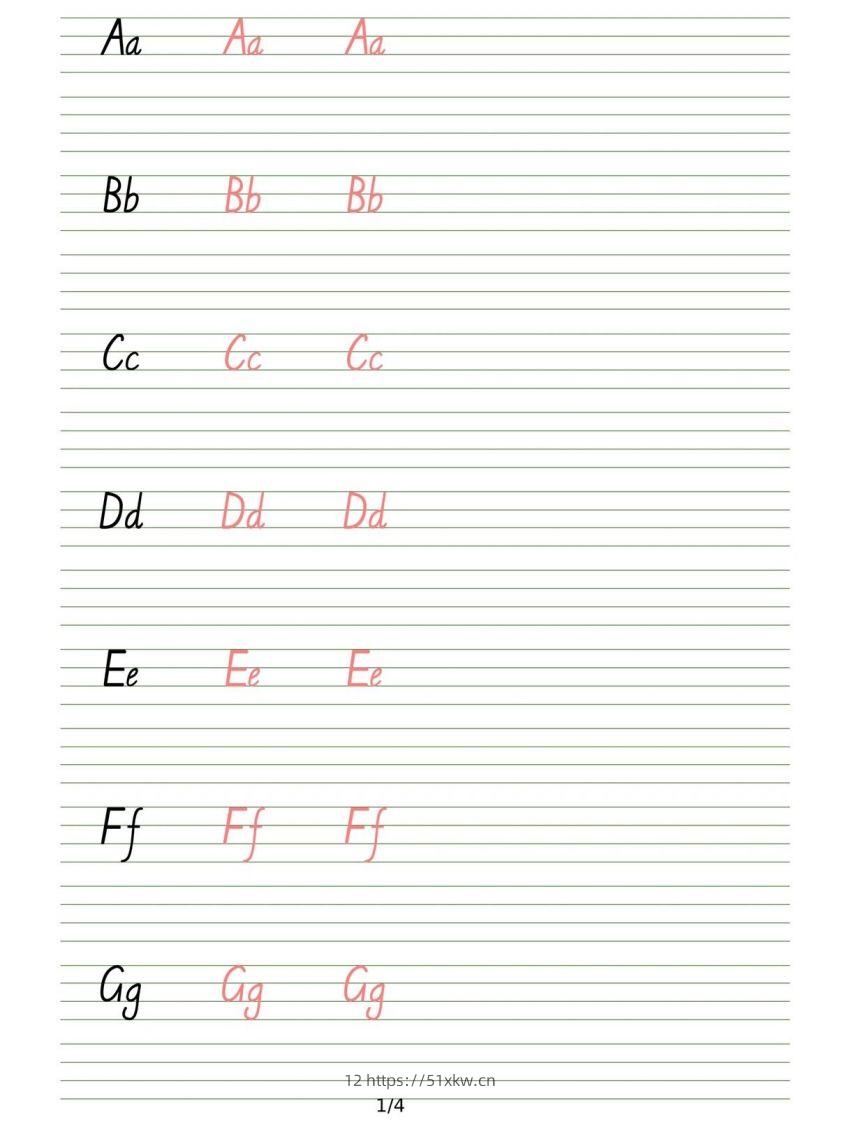 Aa Aa Aa
Bb Bb Bb
Cc Cc Cc
Dd Dd Dd
Ee Ee Ee
Ff Ff Ff
Gg Gg Gg
12 https://51xkw.cn
1/4